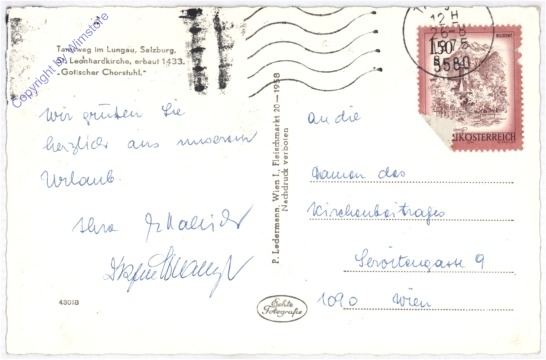 Copyright by Wimstore
Tamsweg im Lungau, Salzburg,
St. Leonhardkirche, erbaut 1433.
"Gotischer Chorstuhl."
12 H
26-8
5580
150
REPUBLIK ÖSTERREICH
Wir grüßen Sie
herzlich aus unserem
Urlaub.
Ihre
an die
Damen des
Kirchenbeitrages
Servitengasse 9
1090 Wien
P. Ledermann, Wien I, Fleischmarkt 20 — 1958
Nachdruck verboten
Echte
Fotografie
43018